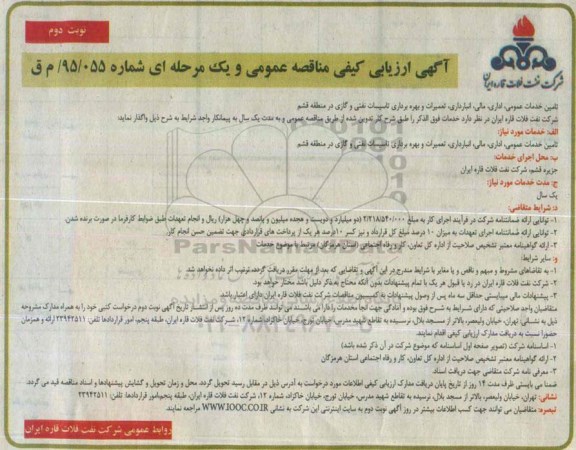 نوبت دوم
شرکت نفت فلات قاره ایران
آگهی ارزیابی کیفی مناقصه عمومی و یک مرحله ای شماره ۹۵/۰۵۵/ م ق
تامین خدمات عمومی، اداری، مالی، انبارداری، تعمیرات و بهره برداری تاسیسات نفتی و گازی در منطقه قشم
شرکت نفت فلات قاره ایران در نظر دارد خدمات فوق الذکر را طبق شرح کار تدوین شده از طریق مناقصه عمومی و به مدت یک سال به پیمانکار واجد شرایط به شرح ذیل واگذار نماید:
الف: خدمات مورد نیاز:
تامین خدمات عمومی، اداری، مالی، انبارداری، تعمیرات و بهره برداری تاسیسات نفتی و گازی در منطقه قشم
ب: محل اجرای خدمات:
جزیره قشم، شرکت نفت فلات قاره ایران
ج: مدت خدمات مورد نیاز:
یک سال
د: شرایط متقاضی:
۱- توانایی ارائه ضمانتنامه شرکت در فرآیند اجرای کار به مبلغ ۲/۲۱۸/۵۴۰/۰۰۰ (دو میلیارد و دویست و هجده میلیون و پانصد و چهل هزار) ریال و انجام تعهدات طبق ضوابط کارفرما در صورت برنده شدن.
۲- توانایی ارائه ضمانتنامه اجرای تعهدات به میزان ۱۰ درصد مبلغ کل قرارداد و نیز کسر ۱۰درصد هر یک از پرداخت های قراردادی جهت تضمین حسن انجام کار.
۳- ارائه گواهینامه معتبر تشخیص صلاحیت از اداره کل تعاون، کار و رفاه اجتماعی (استان هرمزگان) مرتبط با موضوع خدمات
و: سایر شرایط:
۱- به تقاضاهای مشروط و مبهم و ناقص و یا مغایر با شرایط مندرج در این آگهی و تقاضایی که بعد از مهلت مقرر دریافت گردد، ترتیب اثر داده نخواهد شد.
۲- شرکت نفت فلات قاره ایران در رد یا قبول هر یک یا تمام پیشنهادات بدون آنکه محتاج به ذکر دلیل باشد مختار خواهد بود.
۳- پیشنهادات مالی میبایستی حداقل سه ماه پس از وصول پیشنهادات به کمیسیون مناقصات شرکت نفت فلات قاره ایران دارای اعتبار باشد.
متقاضیان واجد صلاحیتی که دارای شرایط به شرح فوق بوده و آمادگی جهت انجام خدمات را دارا می باشند، می توانند ظرف مدت ده روز پس از انتشار تاریخ آگهی نوبت دوم درخواست کتبی خود را به همراه مدارک مشروحه
ذیل به نشانی: تهران، خیابان ولیعصر، بالاتر از مسجد بلال، نرسیده به تقاطع شهید مدرس، خیابان تورج، خیابان خاکزاد، شماره ۱۲، شرکت نفت فلات قاره ایران، طبقه پنجم، امور قراردادها تلفن: ۲۳۹۴۲۵۱۱ ارائه و همزمان
حضورا نسبت به دریافت مدارک ارزیابی کیفی اقدام نمایند.
۱- اساسنامه شرکت (تصویر صفحه اول اساسنامه که موضوع شرکت در آن ذکر شده باشد)
۲- ارائه گواهینامه معتبر تشخیص صلاحیت از اداره کل تعاون، کار و رفاه اجتماعی استان هرمزگان
۳- معرفی نامه شرکت متقاضی جهت دریافت اسناد.
ضمنا می بایستی ظرف مدت ۱۴ روز از تاریخ پایان دریافت مدارک ارزیابی کیفی اطلاعات مورد درخواست به آدرس ذیل در مقابل رسید تحویل گردد. محل و زمان تحویل و گشایش پیشنهادها و اسناد مناقصه قید می گردد.
نشانی: تهران، خیابان ولیعصر، بالاتر از مسجد بلال، نرسیده به تقاطع شهید مدرس، خیابان تورج، خیابان خاکزاد، شماره ۱۲، شرکت نفت فلات قاره ایران، طبقه پنجم، امور قراردادها، تلفن: ۲۳۹۴۲۵۱۱
تبصره: متقاضیان می توانند جهت کسب اطلاعات بیشتر در روز آگهی نوبت دوم به سایت اینترنتی این شرکت به نشانی WWW.IOOC.CO.IR مراجعه نمایند.
روابط عمومی شرکت نفت فلات قاره ایران
ParsNamadData